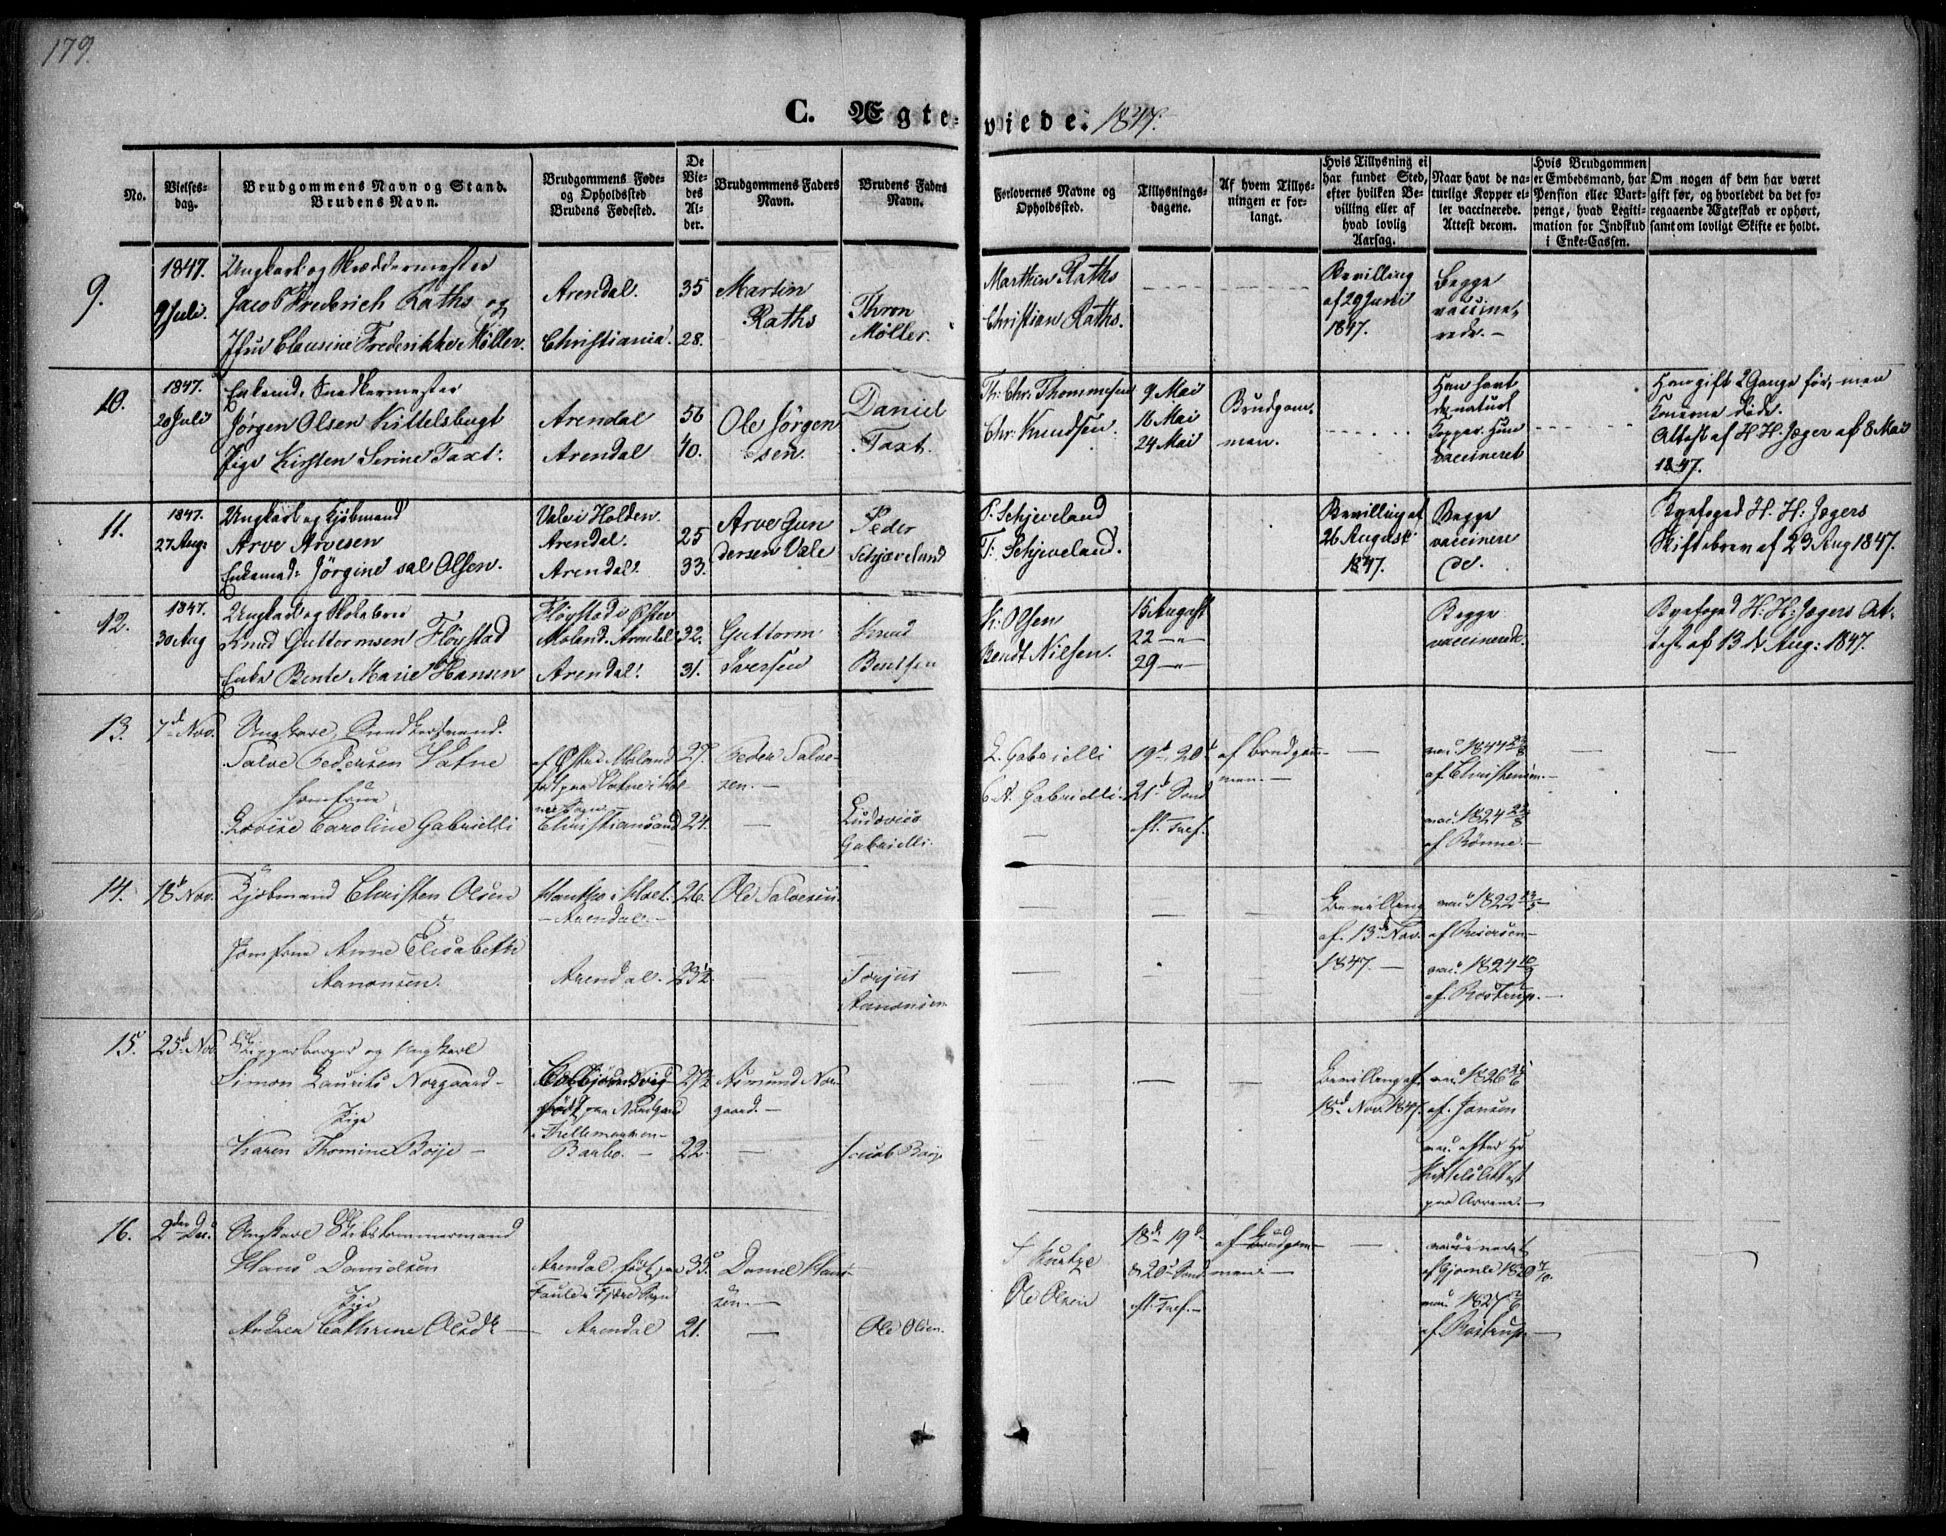 179.
C. Ægteviede. 1847.
No.
Vielses-
dag.
Brudgommens Navn og Stand.
Brudens Navn.
Brudgommens Føde-
og Opholdssted
Brudens Fødested.
De
Vie-
des
Al-
der.
Brudgommens Faders
Navn.
Brudens Faders
Navn.
Forlovernes Navne og
Opholdssted.
Tillysnings-
dagene.
Af hvem Tillys-
ningen er for-
langt.
Hvis Tillysning ei
har fundet Sted,
efter hvilken Be-
villing eller af
hvad lovlig
Aarsag.
Naar havt de na-
turlige Kopper el-
ler vaccinerede.
Attest derom.
Hvis Brudgommen
er Embedsmand, har
Pension eller Vart-
penge, hvad Legiti-
mation for Indskud
i Enke-Cassen.
Om nogen af dem har været
gift før, og hvorledet da det fo-
regaaende Ægteskab er ophørt,
samt om lovligt Skifte er holdt.
9.
1847.
9 Juli.
Ungkarl og Skræddermester
Jacob Frederich Raths og
Jfru Clausine Frederikke Møller.
Arendal.
Christiania.
35
28.
Martin
Raths
Thron
Møller.
Marthin Raths
Christian Raths.
Bevilling
af 29 Juni
1847.
Begge
vaccine-
rede. -
10.
1847.
20 Juli
Enkemd. Snedkermester
Jørgen Olsen Kittelsbugt
Pige Kirsten Serine Taxt.
Arendal
Arendal
56
40.
Ole Jörgen
Esen.
Daniel
Taxt.
Th: Chr. Thommesen
Chr. Knudsen.
9 Mai
16 Mai
24 Mai
Brudgom-
men.
Han havt
de naturl
Kopper. Hun
vaccineret
Han gift 2 Gange før, men
Konerne døde.
Attest af H. H. Jæger af 8 Mai
1847.
11.
1847.
27 Aug:
Ungkarl og Kjøbmand
Arve Arvesen
Enkemad: Jörgine sal Olsen.
Vale i Holden.
Arendal.
Arendal.
25
33.
Arve Gun
dersen Vale
Peder
Schjeveland
P. Schjeveland
T: Schjeveland.
Bevilling af
26 August
1847.
Begge
vaccinere
de.
Byefoged H. H. Jægers
Skiftebrev af 23 Aug 1847.
12.
1847.
30 Aug
Ungkarl og
Knud Guttormsen Fløystad
Enke Bente Marie Hansen
Fløystad i Øster
Moland. Arendal
Arendal.
32.
31.
Guttorm
Iversen
Knud
Bentsen
K. Olsen
Bendt Nilsen.
15 August
22 - " -
29 - " -
Begge
vaccinerede.
Byefoged H. H. Jægers At-
test af 13 de Aug: 1847.
13.
7d Nov.
Ungkarl, Snedkersvend.
Salve Pedersen Vatne
Jomfrue
Lovise Caroline Gabrielli
af Østre Moland
født paa Vatne i Hol-
Sogn
Christiansand
27.
24.
Peder Salve-
sen. -
Ludovico
Gabrielli.
L. Gabrielli
Gabrielli
19d, 20d
21d Sønd
eft. Tref.
af Brudgom-
men. -
vac. 1844
af Christensen. -
vac. 1824
af Rønne. -
14.
18d Nov.
Kjøbmand Christen Olsen
Jomfrue Anne Elisabeth
Aanonsen.
i Holt.
- Arendal. -
Arendal.
26.
23½
Ole Salvesen.
Torjus
Aanonsen
Bevilling
af. 13d Nov.
1847. -
vac. 1822
af Petersen -
vac. 1824
af. Rostrup. -
15.
25d Nov.
Skipperborger og Ungkarl
Simon Laurits Norgaard -
Pige
Karen Thomine Boye -
Colbjørnsvig
født paa Nordgaard
i
Barbo. -
27½
22.
Asmund Nor-
gaard. -
Jacob Boye
Bevilling af
18d Nov. 1847.
vac. 1826
af. Jansen
vac. efter
Attest
paa -
16.
2den Dec.
Ungkarl Skibstømmermand
Hans Danielsen
Pige
Andrea Cathrine Olsdt -
Arendal, født paa
i Fjære Sogn
Arendal
35.
21.
Daniel Hans-
sen. -
Ole Olsen.
Ole Olsen
18d, 19d
& 20d Sønd
eft. Tref. -
af Brudgom-
men. -
vaccineret
1820
vac. 1827
af Rostrup -